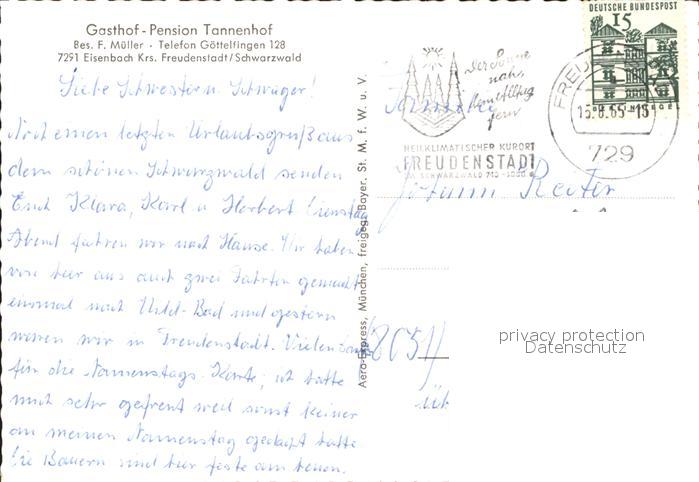 Gasthof - Pension Tannenhof
Bes. F. Müller · Telefon Göttelfingen 128
7291 Eisenbach Krs. Freudenstadt/Schwarzwald
Liebe Schwester u. Schwager!
Noch einen letzten Urlaubsgruß aus
dem schönen Schwarzwald senden
Euch Klara, Karl u Herbert Dienstag
Abend fahren wir nach Hause. Wir haben
von hier aus auch zwei Fahrten gemacht
einmal nach Wild-Bad und gestern
waren wir in Freudenstadt. Vielen Dank
für die Namenstags-Karte, ich hatte
mich sehr gefreut weil sonst keiner
an meinen Namenstag gedacht hatte
Die Bauern sind hier feste am heuen.
Aero-Express, München, freigeg. Bayer. St. M. f. W. u. V.
DEUTSCHE BUNDESPOST
15
Der Sonne
nah,
dem Alltag
fern
HEILKLIMATISCHER KURORT
FREUDENSTADT
IM SCHWARZWALD 740-1000 m
729
Familie
Johann Reiter
(8051)
privacy protection
Datenschutz